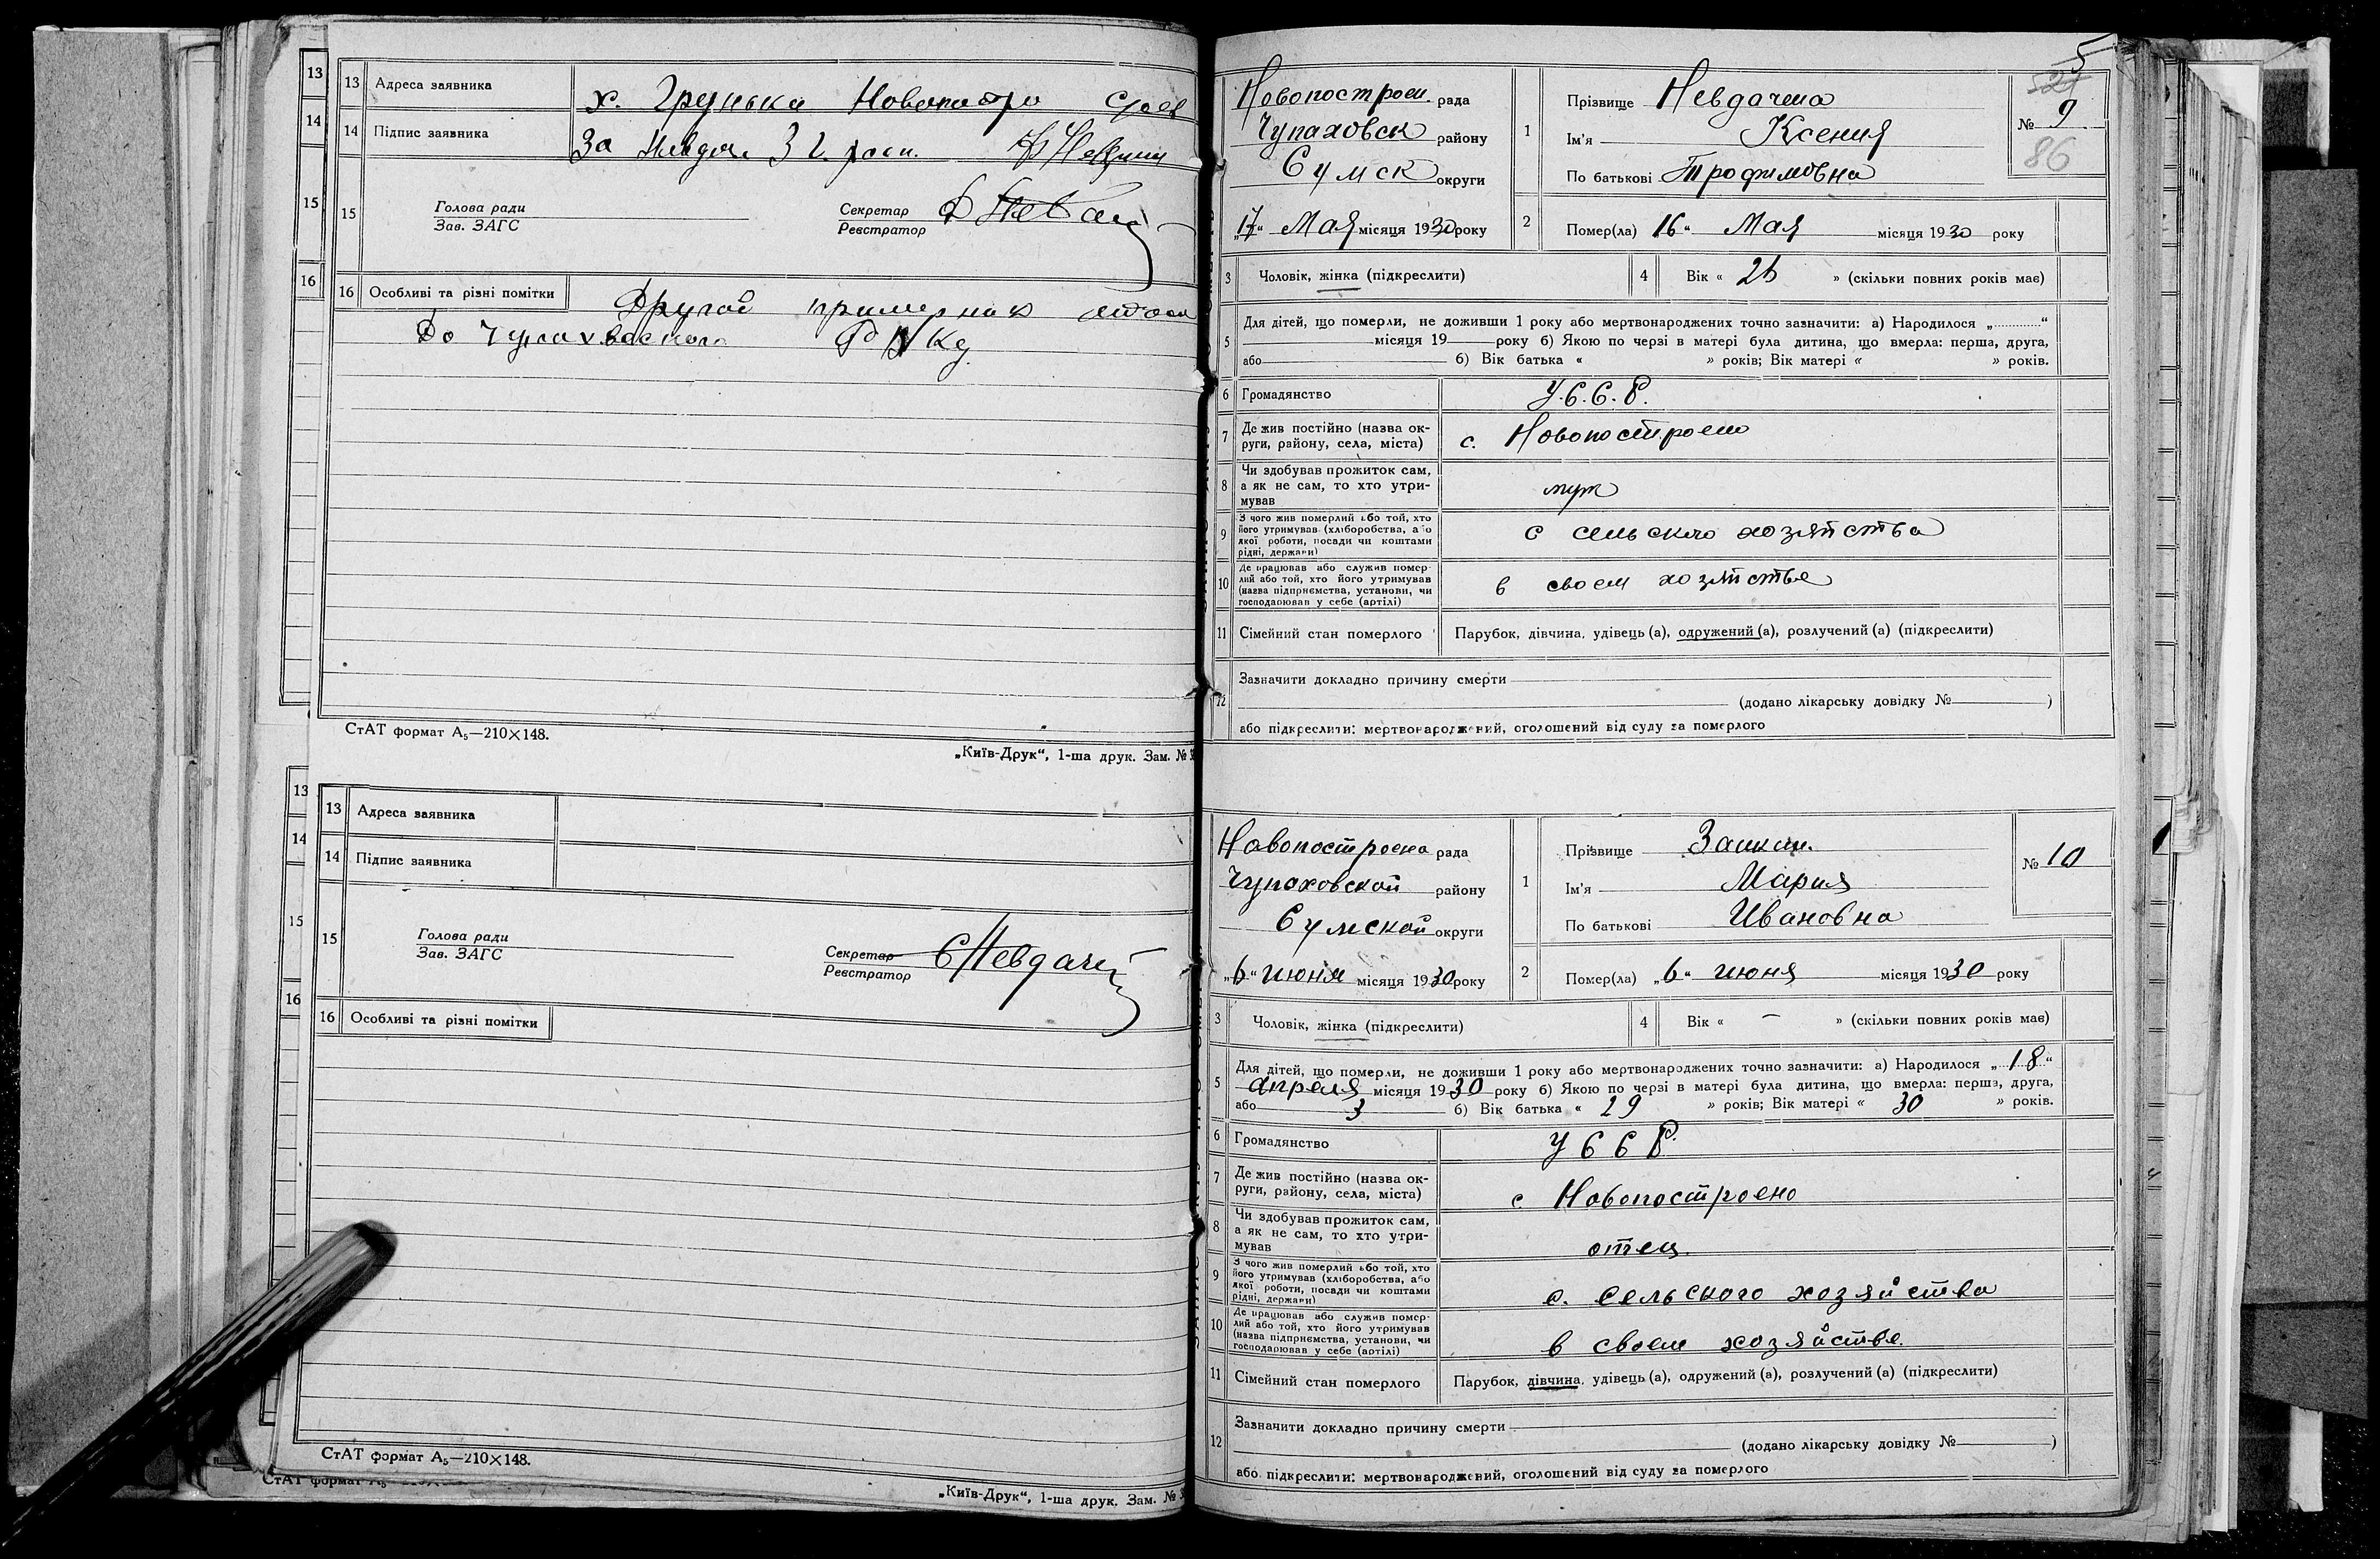 13 Адреса заявника х. Грунька
14 Підпис заявника За
15 Голова ради Секретар
Зав. ЗАГС Реєстратор
16 Особливі та різні помітки Другой примерник
До
СтАТ формат А₅—210×148.
„Київ-Друк“, 1-ша друк. Зам. №
13 Адреса заявника
14 Підпис заявника
15 Голова ради Секретар
Зав. ЗАГС Реєстратор
16 Особливі та різні помітки
СтАТ формат А₅—210×148.
„Київ-Друк“, 1-ша друк. Зам. №
5
521
Новопостроен. рада
Чупаховск району
Сумск округи
„17“ Мая місяця 1930 року
1 Прізвище
Ім'я Ксения
По батькові Трофимовна
№ 9
86
2 Помер(ла) 16“ Мая місяця 1930 року
3 Чоловік, жінка (підкреслити)
4 Вік « » (скільки повних років має)
5 Для дітей, що померли, не доживши 1 року або мертвонароджених точно зазначити: а) Народилося „............“
місяця 19 року б) Якою по черзі в матері була дитина, що вмерла: перша, друга,
або б) Вік батька « » років; Вік матері « » років.
6 Громадянство У.С.С.Р.
7 Де жив постійно (назва ок-
руги, району, села, міста) с.
8 Чи здобував прожиток сам,
а як не сам, то хто утри-
мував муж
9 З чого жив померлий або той, хто
його утримував (хліборобства, або
якої роботи, посади чи коштами
рідні, держави) с сельского хозяйства
10 Де працював або служив помер-
лий або той, хто його утримував
(назва підприємства, установи, чи
господарював у себе (артілі) в своем хозяйстве
11 Сімейний стан померлого Парубок, дівчина, удівець (а), одружений (а), розлучений (а) (підкреслити)
12 Зазначити докладно причину смерти
(додано лікарську довідку № )
або підкреслити: мертвонароджений, оголошений від суду за померлого
Новопостроена рада
Чупаховской району
Сумской округи
„6“ июня місяця 1930 року
1 Прізвище
Ім'я Мария
По батькові Ивановна
№ 10
2 Помер(ла) „6“ июня місяця 1930 року
3 Чоловік, жінка (підкреслити)
4 Вік « — » (скільки повних років має)
5 Для дітей, що померли, не доживши 1 року або мертвонароджених точно зазначити: а) Народилося „18“
апреля місяця 1930 року б) Якою по черзі в матері була дитина, що вмерла: перша, друга,
або 3 б) Вік батька « 29 » років; Вік матері « 30 » років.
6 Громадянство УССР.
7 Де жив постійно (назва ок-
руги, району, села, міста) с Новопостроено
8 Чи здобував прожиток сам,
а як не сам, то хто утри-
мував отец.
9 З чого жив померлий або той, хто
його утримував (хліборобства, або
якої роботи, посади чи коштами
рідні, держави) с. сельского хозяйства
10 Де працював або служив помер-
лий або той, хто його утримував
(назва підприємства, установи, чи
господарював у себе (артілі) в своем хозяйстве.
11 Сімейний стан померлого Парубок, дівчина, удівець (а), одружений (а), розлучений (а) (підкреслити)
12 Зазначити докладно причину смерти
(додано лікарську довідку № )
або підкреслити: мертвонароджений, оголошений від суду за померлого